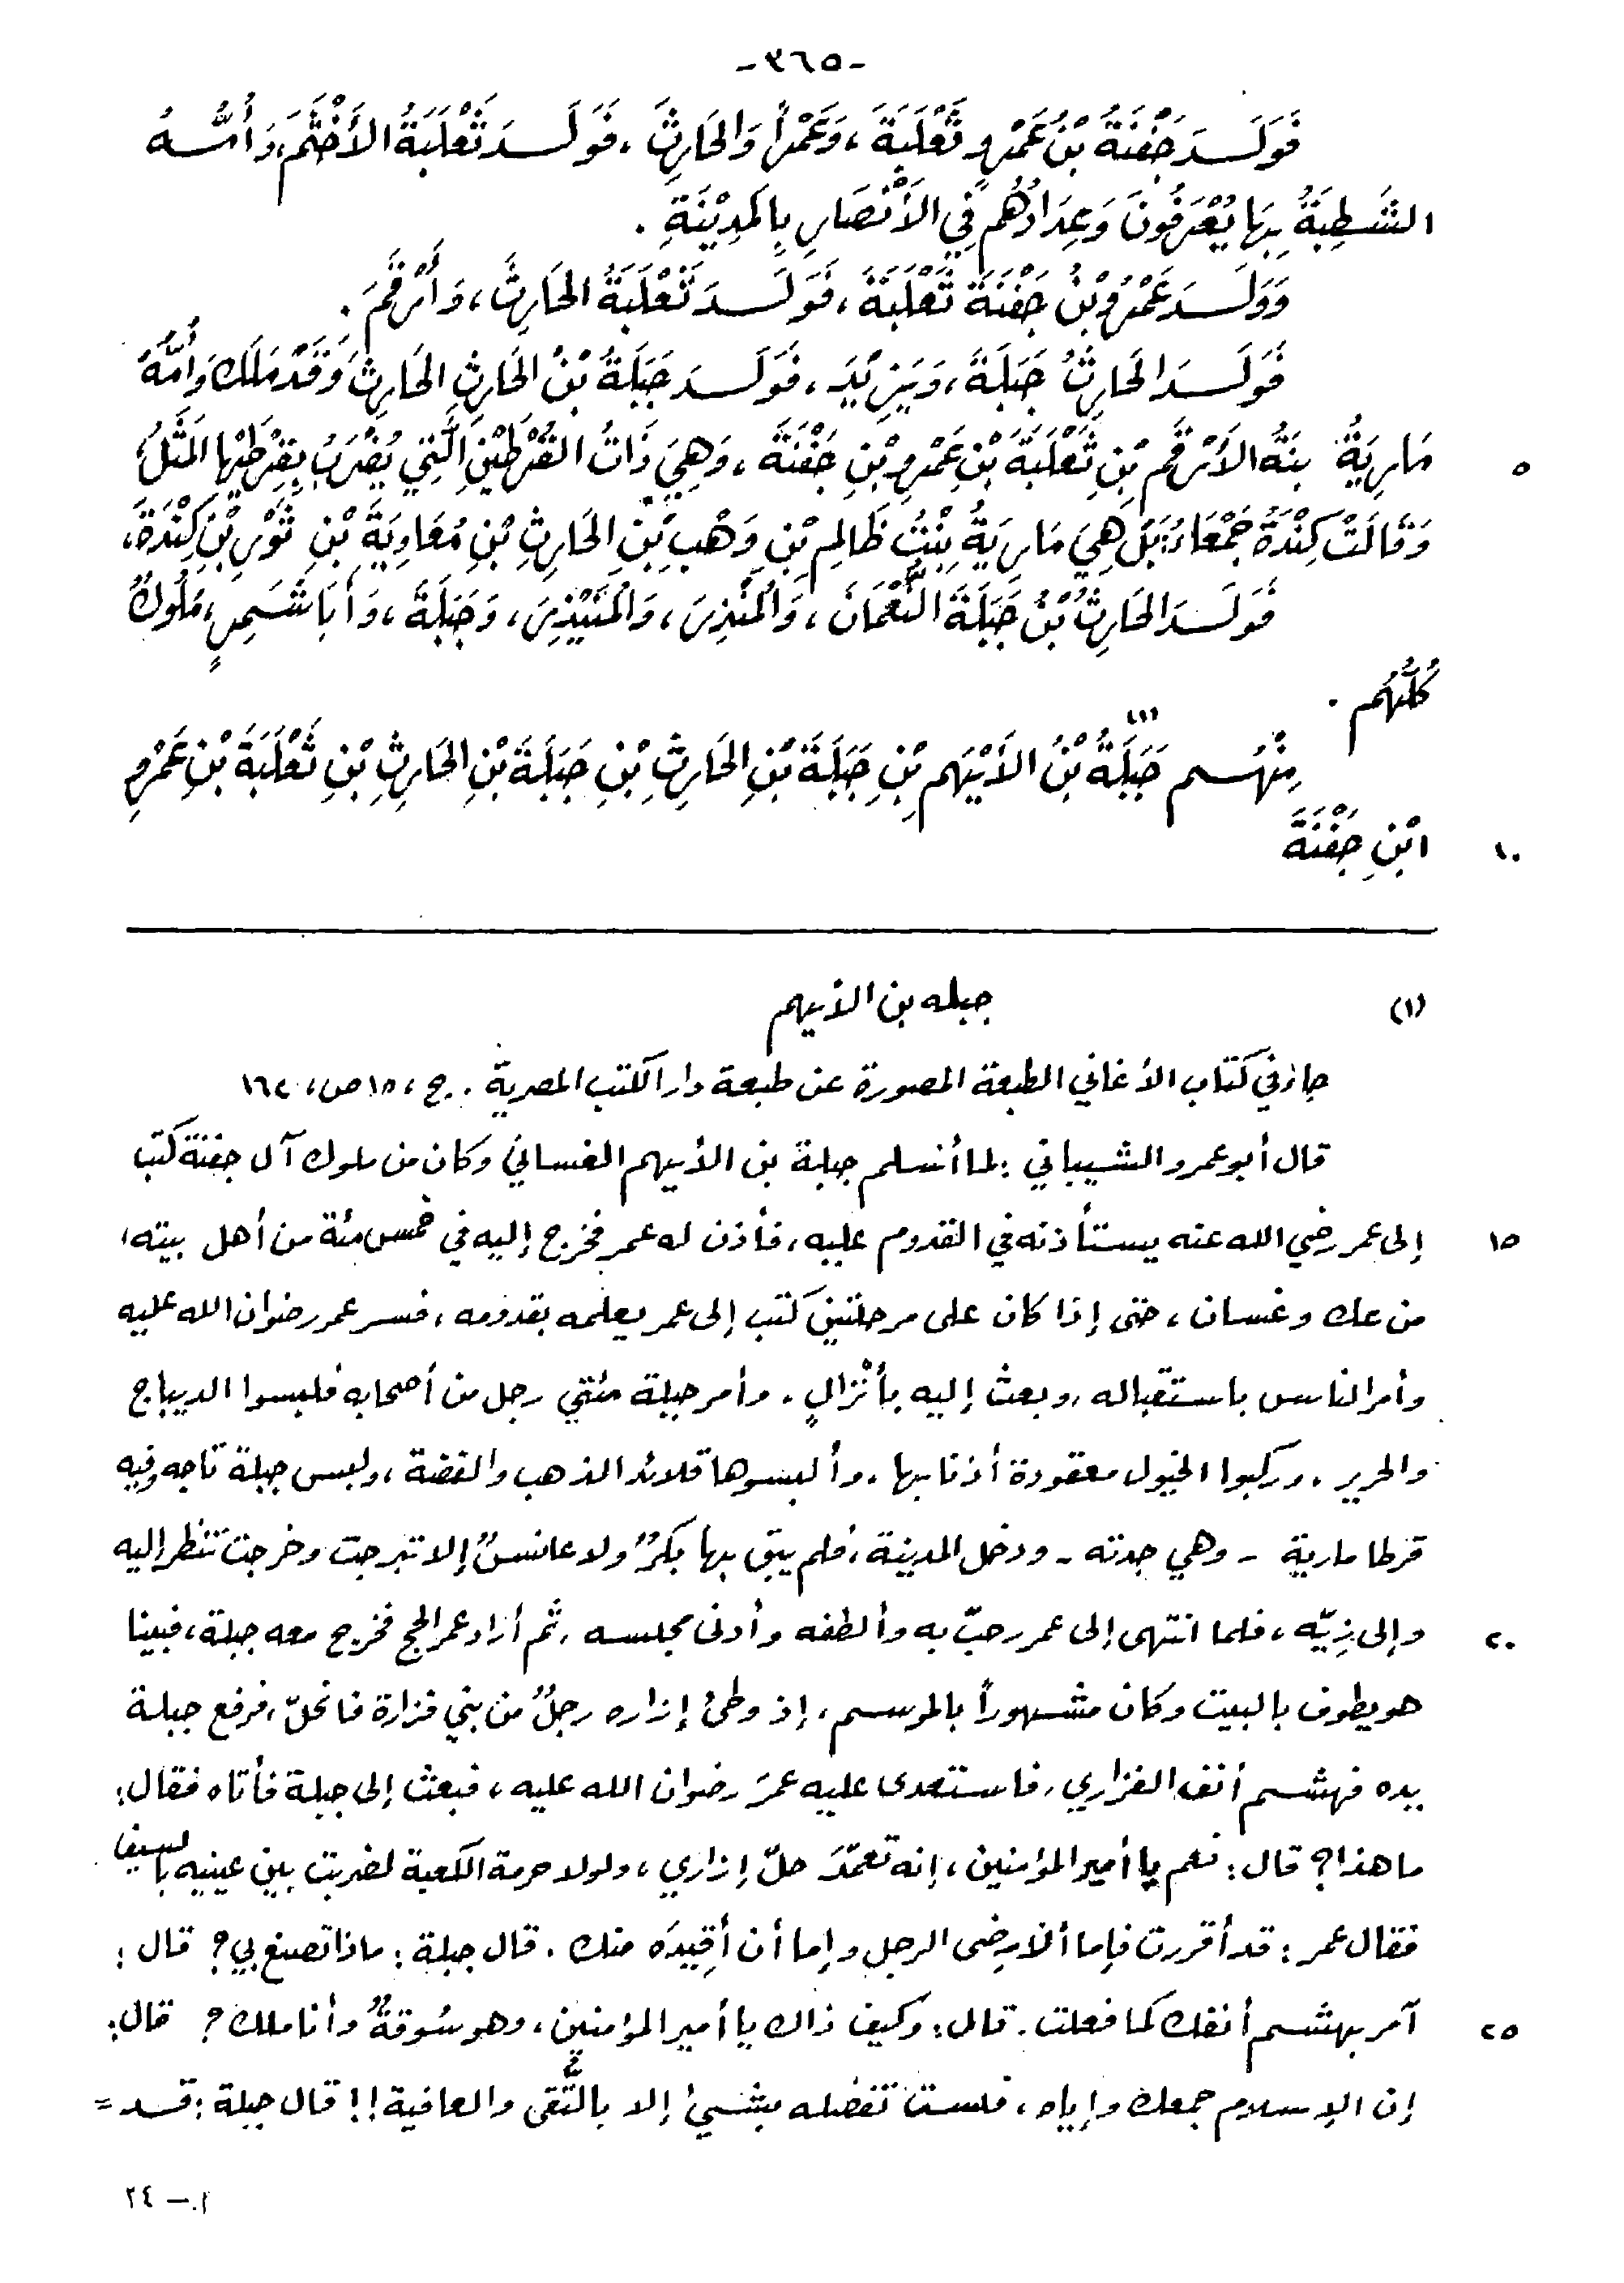 -٣٦٥-
فَوَلَـدَ جَفْنَةُ بْنُ عَمْرٍو ثَعْلَبَةَ، وَعَمْراً وَالحَارِثَ، فَوَلَـدَ ثَعْلَبَةُ الأَخْثَمَ، وَأُمُّـهُ
الشَّطِبَةُ بِهَا يُعْرَفُونَ وَعِدَادُهُم فِي الأَنْصَارِ بِالمَدِيْنَةِ.
وَوَلَـدَ عَمْرُو بْنُ جَفْنَةَ ثَعْلَبَةَ، فَوَلَـدَ ثَعْلَبَةُ الحَارِثَ، وَأَرْقَمَ.
فَوَلَـدَ الحَارِثُ جَبَلَةَ، وَيَزِيْدَ، فَوَلَـدَ جَبَلَةُ بْنُ الحَارِثِ الحَارِثَ وَقَدْ مَلَكَ وَأُمُّهُ
مَارِيَةُ بِنْتُ الأَرْقَمِ بْنِ ثَعْلَبَةَ بْنِ عَمْرِو بْنِ جَفْنَةَ، وَهِيَ ذَاتُ القُرْطَيْنِ الَّتِي يُضْرَبُ بِقِرْطَيْهَا المَثَلُ، ٥
وَقَالَتْ كِنْدَةُ جَمْعَاءُ: بَلْ هِيَ مَارِيَةُ بِنْتُ ظَالِمِ بْنِ وَهْبِ بْنِ الحَارِثِ بْنِ مُعَاوِيَةَ بْنِ ثَوْرِ بْنِ كِنْدَةَ،
فَوَلَـدَ الحَارِثُ بْنُ جَبَلَةَ النُّعْمَانَ، وَالمُنْذِرَ، وَالمُنَيْذِرَ، وَجَبَلَةَ، وَأَبَا شَمِرٍ، مُلُوكٌ
كُلُّهُم.
مِنْهُـم جَبَلَةُ (١) بْنُ الأَيْهَمِ بْنِ جَبَلَةَ بْنِ الحَارِثِ بْنِ جَبَلَةَ بْنِ الحَارِثِ بْنِ ثَعْلَبَةَ بْنِ عَمْرِو
ابْنِ جَفْنَةَ ١٠
(١) جبله بن الأيهم
جاء في كتاب الأغاني الطبعة المصورة عن طبعة دار الكتب المصرية. ج، ١٥ ص، ١٦٢
قال أبو عمرو الشيباني: لما أسلم جبلة بن الأيهم الغساني وكان من ملوك آل جفنة كتب
إلى عمر رضي الله عنه يستأذنه في القدوم عليه، فأذن له عمر فخرج إليه في خمس مئة من أهل بيته، ١٥
من عك وغسان، حتى إذا كان على مرحلتين كتب إلى عمر يعلمه بقدومه، فسر عمر رضوان الله عليه
وأمر الناس باستقباله، وبعث إليه بأنْزالٍ. وأمر جبلة مئتي رجل من أصحابه فلبسوا الديباج
والحرير. وركبوا الخيول معقودة أذنابها. وألبسوها قلائد الذهب والفضة، ولبس جبلة تاجه وفيه
قرطا مارية - وهي جدته - ودخل المدينة، فلم يبق بها بكرٌ ولا عانسٌ إلا تبرجت وخرجت تنظر إليه
وإلى زِيّه، فلما انتهى إلى عمر رحبّ به وألطفه وأدنى مجلسه. ثم أراد عمر الحج فخرج معه جبلة، فبينا ٢٠
هو يطوف بالبيت وكان مشهوراً بالموسم، إذ وطئ إزاره رجلٌ من بني فزارة فانحلّ، فرفع جبلة
يده فهشم أنف الفزاري، فاستعدى عليه عمرَ رضوان الله عليه، فبعث إلى جبلة فأتاه فقال:
ما هذا؟ قال: نعم يا أمير المؤمنين، إنه تعمّدَ حلّ إزاري، ولولا حرمة الكعبة لضربت بين عينيه بالسيف
فقال عمر: قد أقررت فإما أن ترضى الرجل وإما أن أُقِيدَه منك. قال جبلة: ماذا تصنع بي؟ قال:
آمر بهشم أنفك كما فعلت. قال: وكيف ذاك يا أمير المؤمنين، وهو سُوقةٌ وأنا ملك؟ قال: ٢٥
إن الإسلام جمعك وإياه، فلست تفضله بشيئ إلا بالتُّقى والعافية!! قال جبلة: قـد =
٢٤ - م.